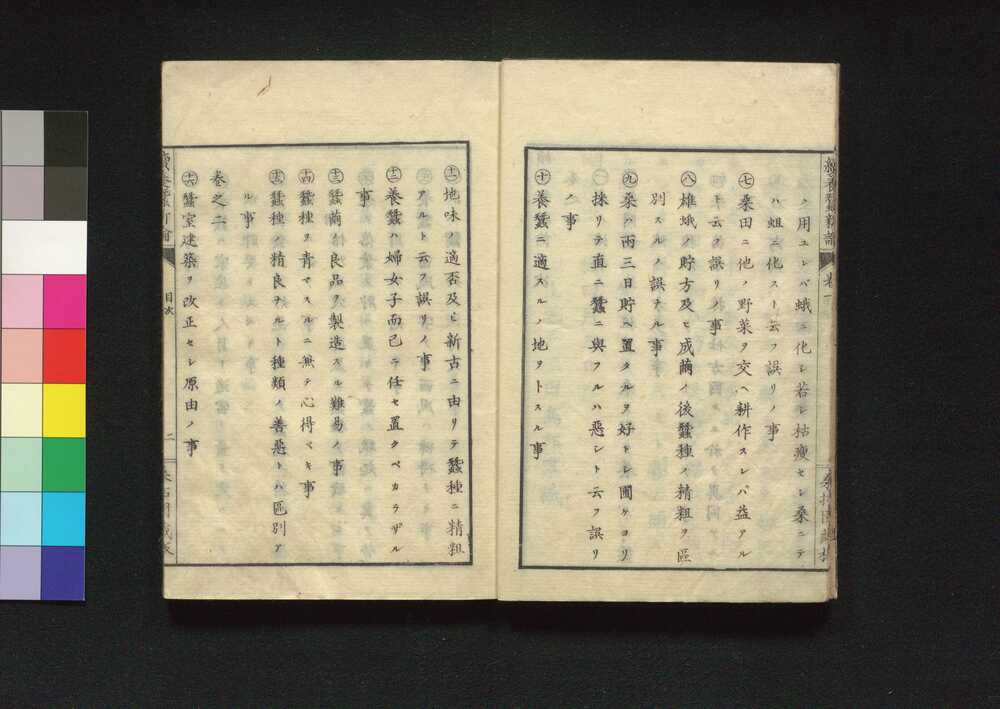 ヲ用ユレバ蛾ニ化シ若シ枯痩セシ桑ニテ
ハ蛆ニ化スト云フ誤リノ事
㊆桑田ニ他ノ野菜ヲ交ヘ耕作スレバ益アル
ト云フ誤リノ事
㊇雄蛾ノ貯方及ヒ成繭ノ後蠶種ノ精粗ヲ區
別スルノ誤ナル事
㊈桑ハ両三日貯ヘ置タルヲ好トシ圃ケヨリ
採リテ直ニ蠶ニ與フルハ悪シト云フ誤リ
ノ事
㊉養蠶ニ適スルノ地ヲトスル事
⑪地味ノ適否及ヒ新古ニ由リテ蠶種ニ精粗
アルト云フ誤リノ事
⑫養蠶ハ婦女子而已ニ任セ置クベカラザル
事
⑬蠶繭ノ良品ヲ製造スル難易ノ事
⑭蠶種ヲ青マスルニ無テ心得ベキ事
⑮蠶種ノ精良ナルト種類ノ善悪トハ區別ア
ル事
巻之二
⑯蠶室建築ヲ改正セシ原由ノ事
目次
二